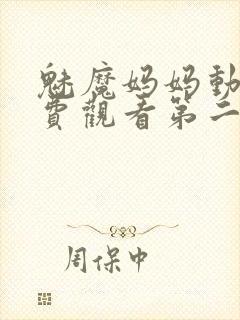 魅魔妈妈動
費觀看第二
周保中